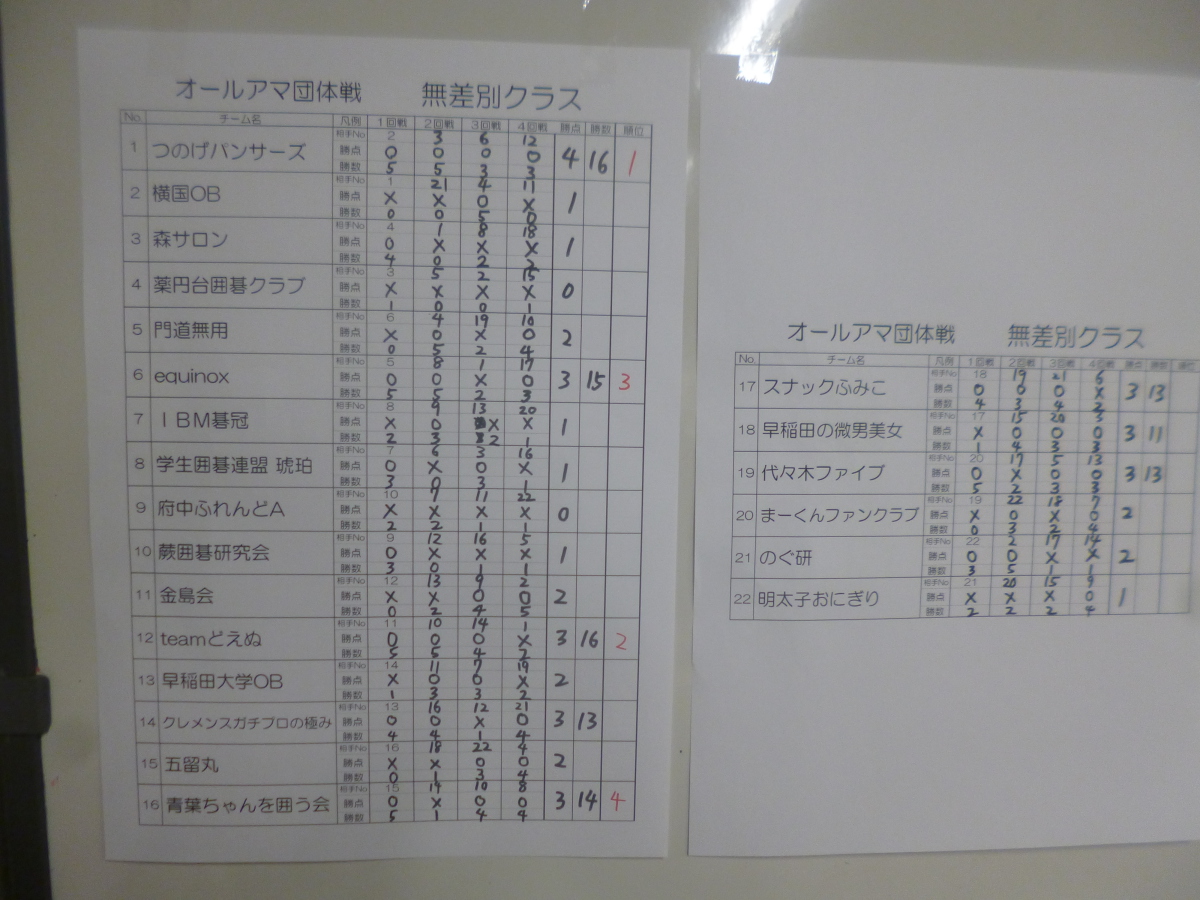 オールアマ団体戦 無差別クラス
No. チーム名 凡例 1回戦 2回戦 3回戦 4回戦 勝点 勝数 順位
相手No 2 3 6 12
1 つのげパンサーズ 勝点 0 0 0 0 4 16 1
勝数 5 5 3 3
相手No 1 21 4 11
2 横国OB 勝点 X X 0 X 1
勝数 0 0 5 0
相手No 4 1 8 18
3 森サロン 勝点 0 X X X 1
勝数 4 0 2 2
相手No 3 5 2 15
4 薬円台囲碁クラブ 勝点 X X X X 0
勝数 1 0 0 1
相手No 6 4 19 10
5 門道無用 勝点 X 0 X 0 2
勝数 0 5 2 4
相手No 5 8 1 17
6 equinox 勝点 0 0 X 0 3 15 3
勝数 5 5 2 3
相手No 8 9 13 20
7 IBM碁冠 勝点 X 0 X X 1
勝数 2 3 2 1
相手No 7 6 3 16
8 学生囲碁連盟 琥珀 勝点 0 X 0 X 1
勝数 3 0 3 1
相手No 10 7 11 22
9 府中ふれんどA 勝点 X X X X 0
勝数 2 2 1 1
相手No 9 12 16 5
10 蕨囲碁研究会 勝点 0 X X X 1
勝数 3 0 1 1
相手No 12 13 9 2
11 金島会 勝点 X X 0 0 2
勝数 0 2 4 5
相手No 11 10 14 1
12 teamどえぬ 勝点 0 0 0 X 3 16 2
勝数 5 5 4 2
相手No 14 11 7 19
13 早稲田大学OB 勝点 X 0 0 X 2
勝数 1 3 3 2
相手No 13 16 12 21
14 クレメンスガチプロの極み 勝点 0 0 X 0 3 13
勝数 4 4 1 4
相手No 16 18 22 4
15 五留丸 勝点 X X 0 0 2
勝数 0 1 3 4
相手No 15 14 10 8
16 青葉ちゃんを囲う会 勝点 0 X 0 0 3 14 4
勝数 5 1 4 4
オールアマ団体戦 無差別クラス
No. チーム名 凡例 1回戦 2回戦 3回戦 4回戦 勝点 勝数 順位
相手No 18 19 21 6
17 スナックふみこ 勝点 0 0 0 X 3 13
勝数 4 3 4 2
相手No 17 15 20 3
18 早稲田の微男美女 勝点 X 0 0 0 3 11
勝数 1 4 3 3
相手No 20 17 5 13
19 代々木ファイブ 勝点 0 X 0 0 3 13
勝数 5 2 3 3
相手No 19 22 18 7
20 まーくんファンクラブ 勝点 X 0 X 0 2
勝数 0 3 2 4
相手No 22 2 17 14
21 のぐ研 勝点 0 0 X X 2
勝数 3 5 1 1
相手No 21 20 15 9
22 明太子おにぎり 勝点 X X X 0 1
勝数 2 2 2 4